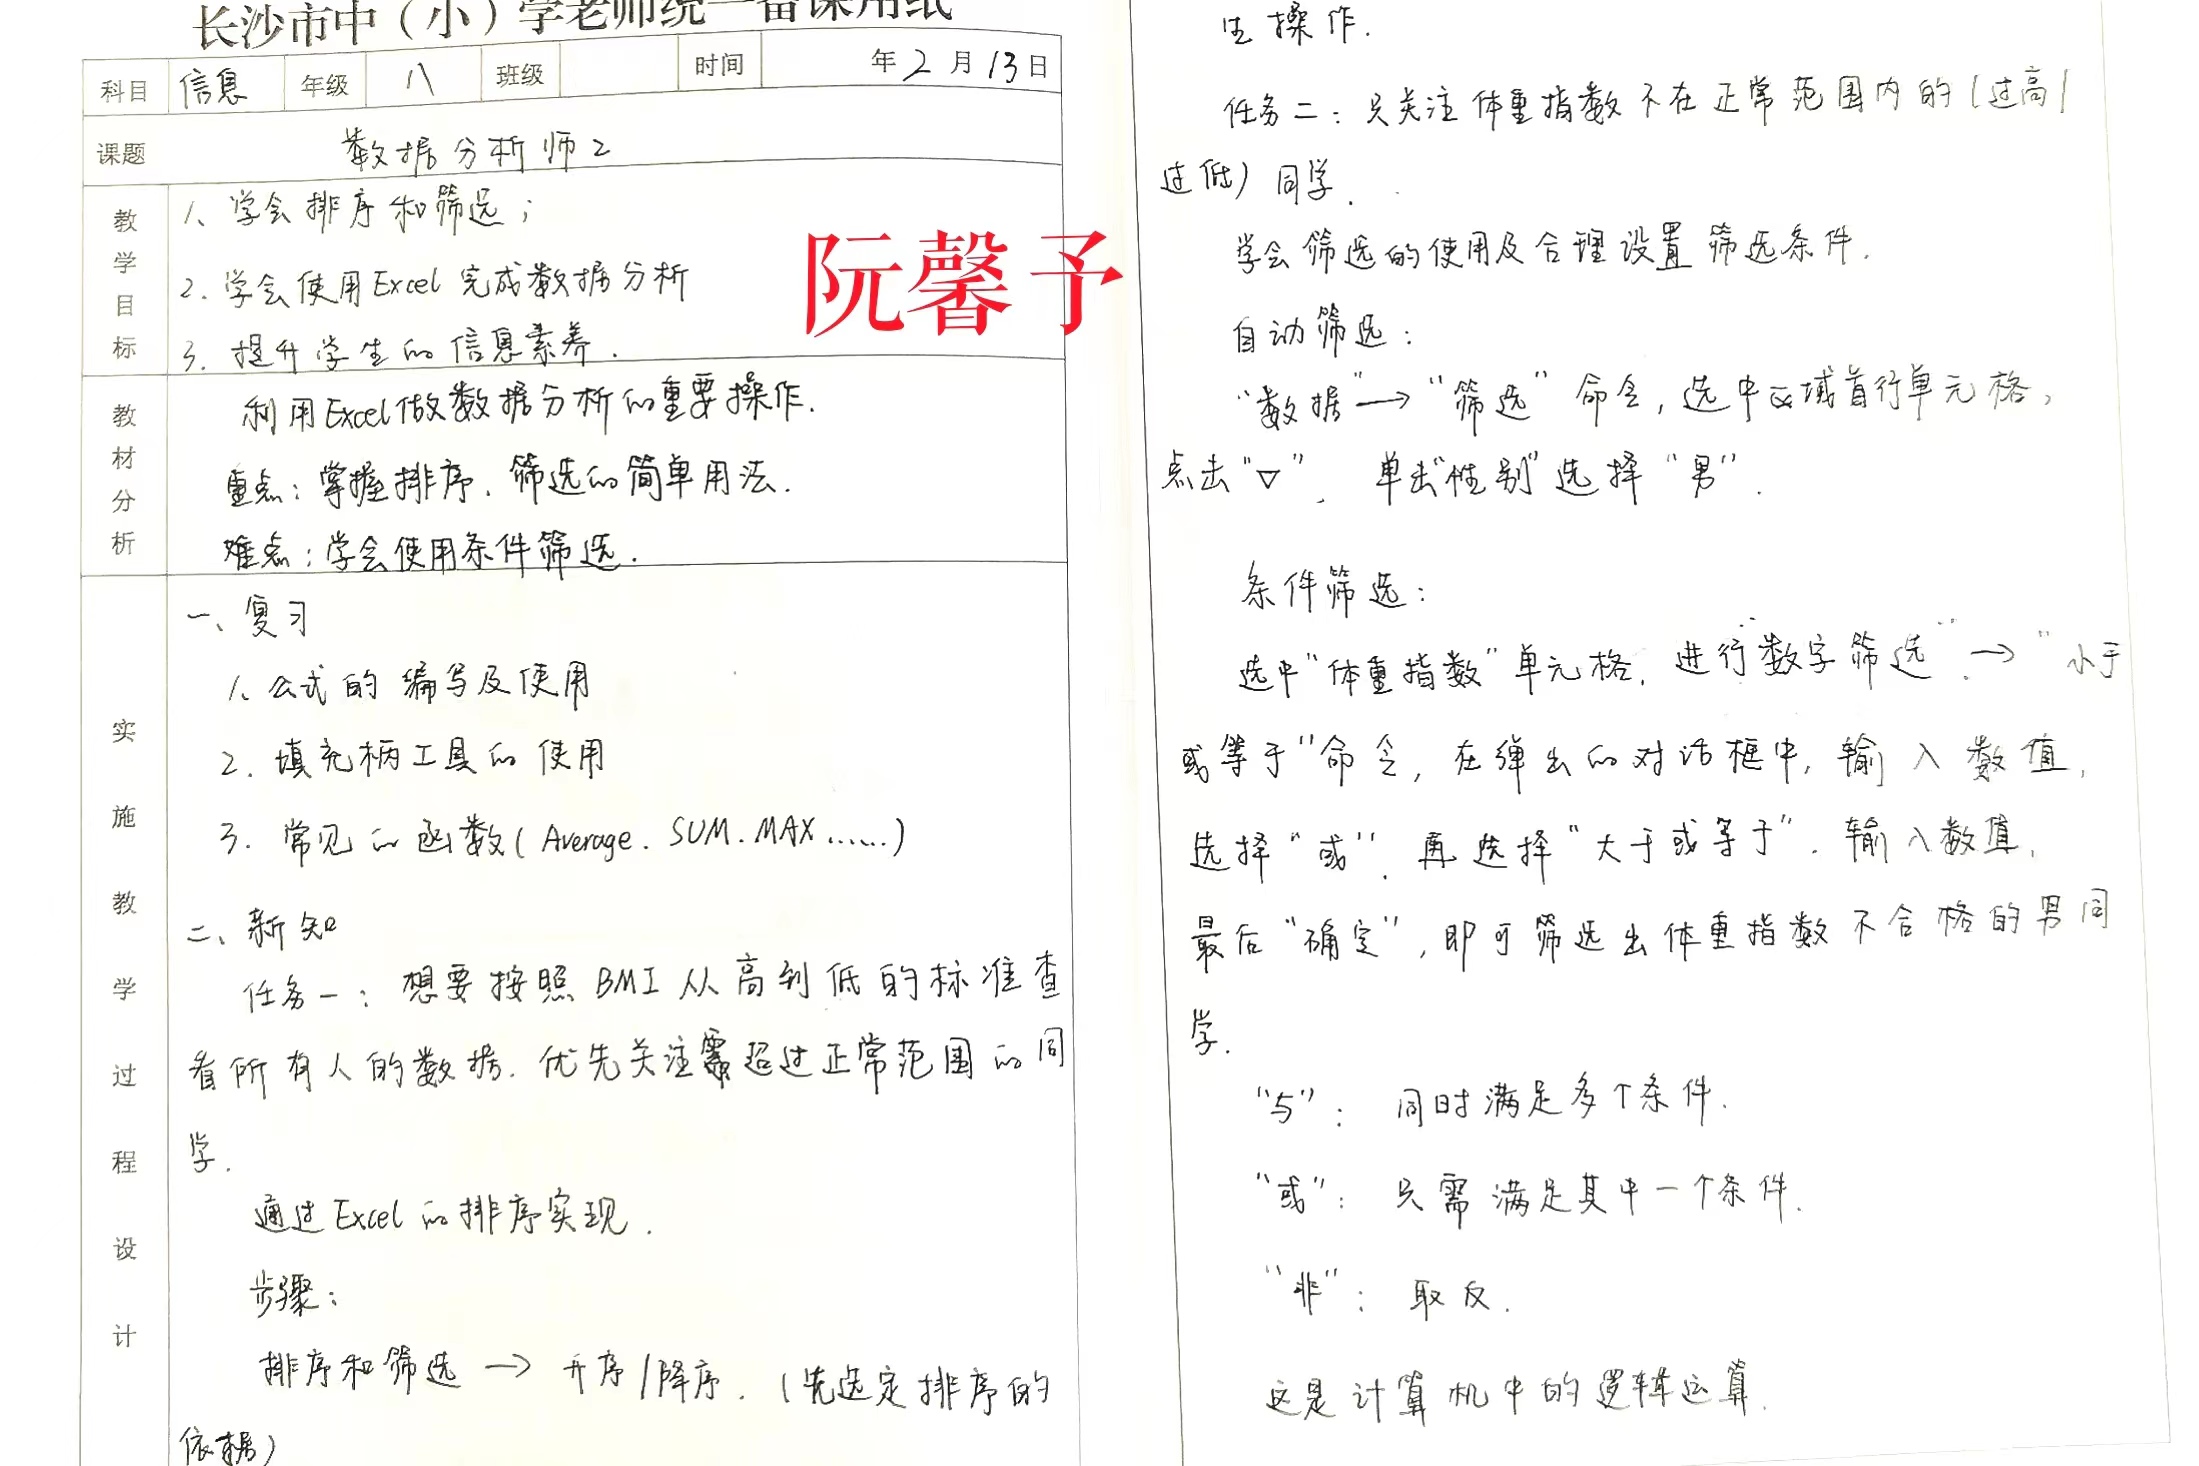 长沙市中（小）学老师统一备课用纸
科目 信息 年级 八 班级 时间 年2月13日
课题 数据分析师2
教学目标
1、学会排序和筛选；
2. 学会使用Excel 完成数据分析
3. 提升学生的信息素养.
阮馨予
教材分析
利用Excel做数据分析的重要操作.
重点：掌握排序、筛选的简单用法.
难点：学会使用条件筛选.
实施教学过程设计
一、复习
1、公式的编写及使用
2. 填充柄工具的使用
3. 常见的函数(Average. SUM. MAX ......)
二、新知
任务一：想要按照BMI从高到低的标准查
看所有人的数据.优先关注超过正常范围的同
学.
通过Excel的排序实现.
步骤：
排序和筛选 → 升序/降序.（先选定排序的
依据）
生操作.
任务二：只关注体重指数不在正常范围内的（过高/
过低）同学.
学会筛选的使用及合理设置筛选条件.
自动筛选：
“数据”→“筛选”命令，选中区域首行单元格，
点击“▽”，单击“性别”选择“男”.
条件筛选：
选中“体重指数”单元格，进行“数字筛选”.→“小于
或等于”命令，在弹出的对话框中，输入数值，
选择“或”，再选择“大于或等于”.输入数值，
最后“确定”，即可筛选出体重指数不合格的男同
学.
“与”： 同时满足多个条件.
“或”： 只需满足其中一个条件.
“非”： 取反.
这是计算机中的逻辑运算.